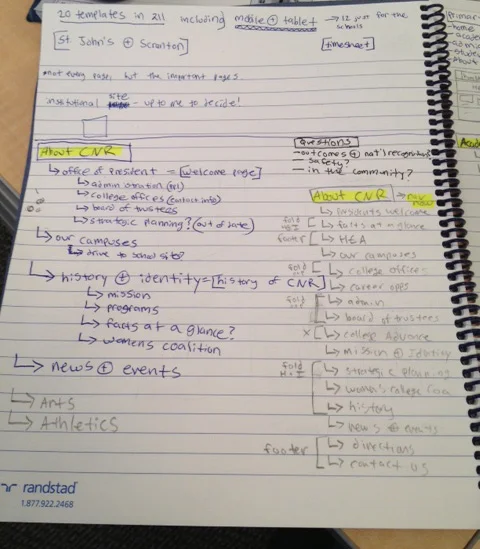 20 templates in all including mobile + tablet → 12 just for the schools
[St. John's + Scranton]
[timesheet]
*not every page, but the important pages
institutional site - up to me to decide!
About CNR
↳ office of President = [welcome page]
↳ administration
↳ college offices (contact info)
↳ board of trustees
↳ strategic planning? (out of date)
↳ our campuses
↳ drive to school site?
↳ history + identity = [history of CNR]
↳ mission
↳ programs
↳ facts at a glance?
↳ womens coalition
↳ news + events
↳ Arts
↳ Athletics
Questions
- outcomes + nat'l recognition?
- safety?
- in the community?
About CNR → nav
↳ presidents welcome
↳ facts at a glance
footer [↳ H&A
↳ our campuses
fold [↳ college offices
↳ career opps
fold [↳ admin
↳ board of trustees
x [↳ college Advance
↳ mission + Identity
fold [↳ strategic planning
↳ women's college
↳ history
↳ news + events
footer [↳ directions
↳ contact us
primar
-home
-acade
-admis
-studen
-About
Acad
randstad
1.877.922.2468